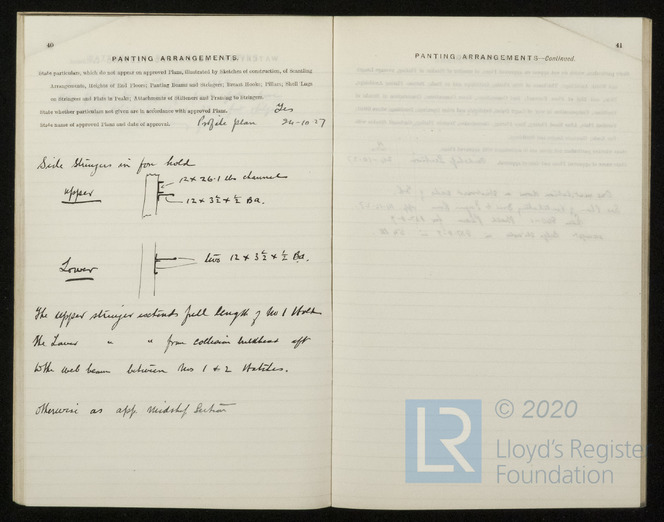 40
PANTING ARRANGEMENTS.
State particulars, which do not appear on approved Plans, illustrated by Sketches of construction, of Scantling
Arrangements, Heights of End Floors; Panting Beams and Stringers; Breast Hooks; Pillars; Shell Lugs
on Stringers and Flats in Peaks; Attachments of Stiffeners and Framing to Stringers.
State whether particulars not given are in accordance with approved Plans. Yes
State name of approved Plans and date of approval. Profile plan 24-10-27
Side Stringers in fore hold
upper
12 x 26.1 lbs channel
12 x 3½ x ½ BA.
Lower
two 12 x 3½ x ½ BA.
The upper stringer extends full length of No 1 Hold
The Lower " " from collision bulkhead aft
to the web beam between Nos 1 & 2 Hatches.
Otherwise as app. Midship Section
41
PANTING ARRANGEMENTS—Continued.
LR
© 2020
Lloyd's Register
Foundation